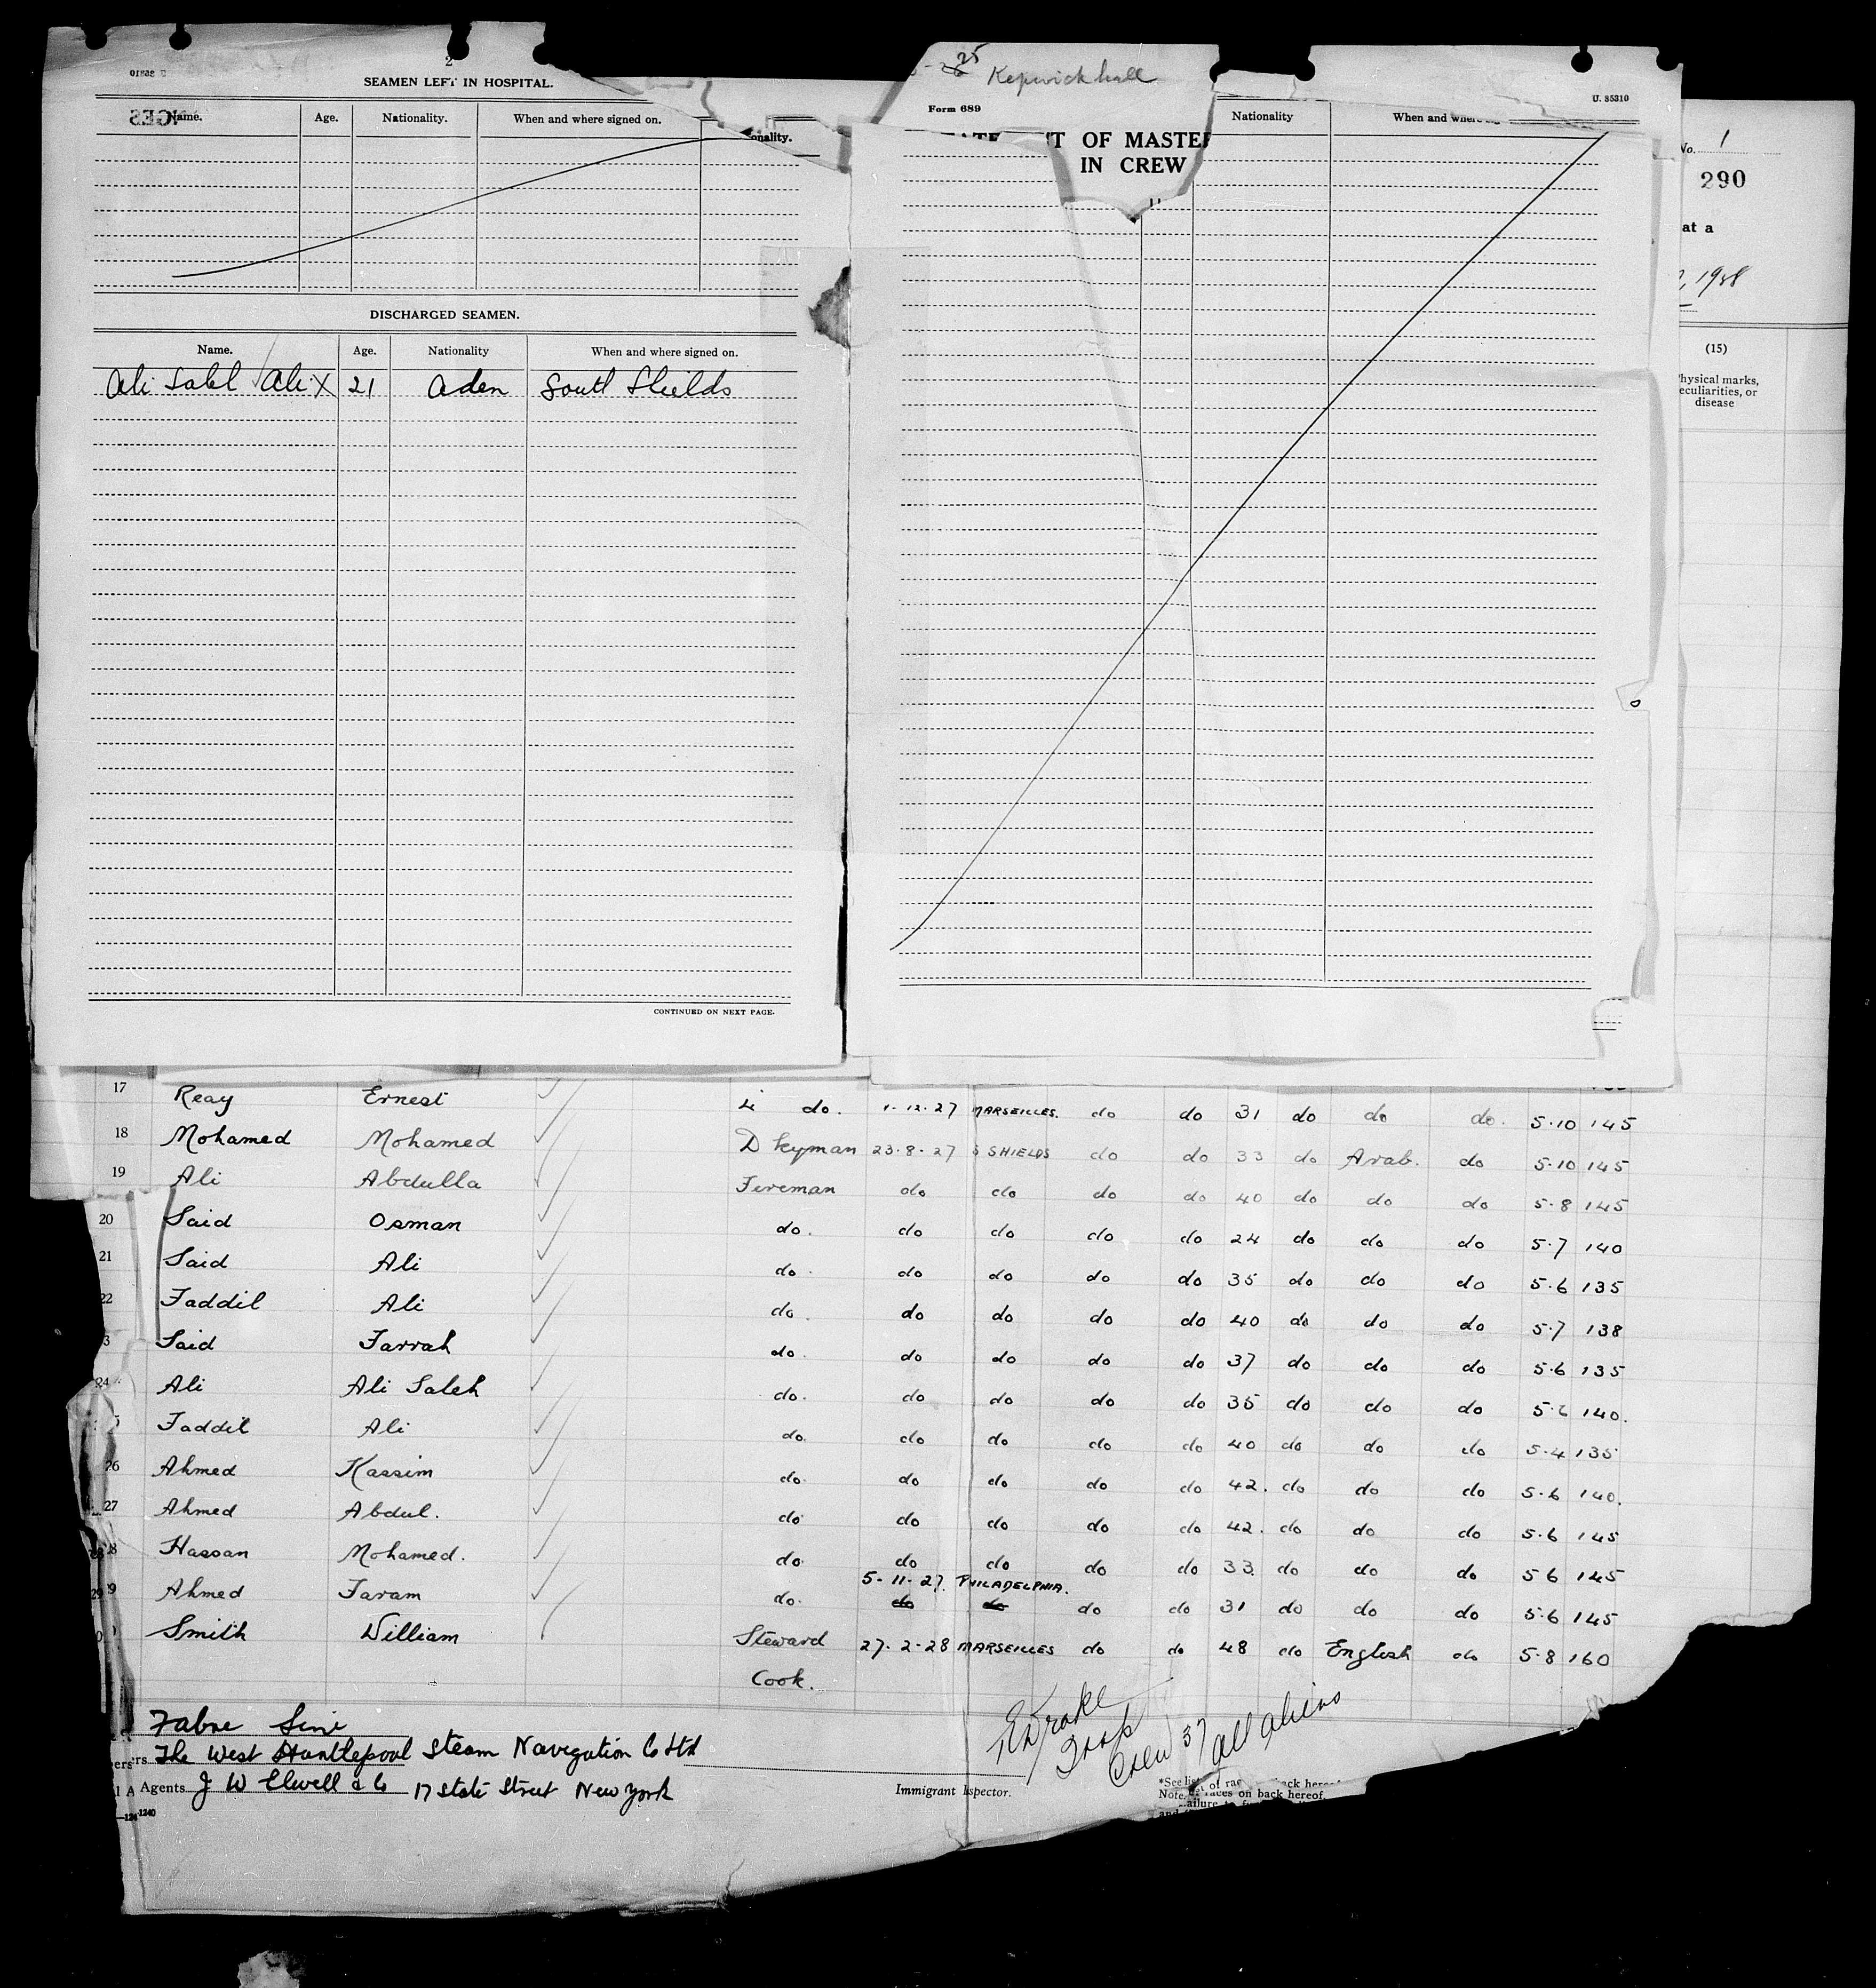 2
SEAMEN LEFT IN HOSPITAL.
Name. Age. Nationality. When and where signed on.
onality.
DISCHARGED SEAMEN.
Name. Age. Nationality When and where signed on.
Ali Saleh Ali X 21 Aden South Shields
CONTINUED ON NEXT PAGE.
25 Kepwickhall
Form 689
U. 85310
T OF MASTER
IN CREW
Nationality When and where
No. 1
290
at a
, 1928
(15)
Physical marks,
peculiarities, or
disease
17 Reay Ernest do. 1-12-27 MARSEILLES. do do 31 do do do. 5-10 145
18 Mohamed Mohamed D keyman 23-8-27 S SHIELDS do do 33 do Arab. do 5-10 145
19 Ali Abdulla Fireman do do do do 40 do do do 5-8 145
20 Said Osman do. do do do do 24 do do do 5-7 140
21 Said Ali do. do do do do 35 do do do 5-6 135
22 Faddil Ali do. do do do do 40 do do do 5-7 138
3 Said Farrah do. do do do do 37 do do do 5-6 135
24 Ali Ali Saleh do. do do do do 35 do do do 5-6 140.
5 Faddil Ali do. do do do do 40 do do do 5-4 135
26 Ahmed Kassim do. do do do do 42. do do do 5-6 140.
27 Ahmed Abdul. do. do do do do 42. do do do 5-6 145
28 Hassan Mohamed. do. do do do do 33. do do do 5 6 145
5-11-27. PHILADELPHIA.
29 Ahmed Faram do. do do do do 31 do do do 5-6 145
0 Smith William Steward 27-2-28 MARSEILLES do do 48 do English do 5-8 160
Cook.
Fabre Line
ers The West Hartlepool Steam Navigation Co Ltd
Agents J W Elwell & Co 17 State Street New York
Crew 37 all aliens
Immigrant Inspector.
*See list of races on back hereof.